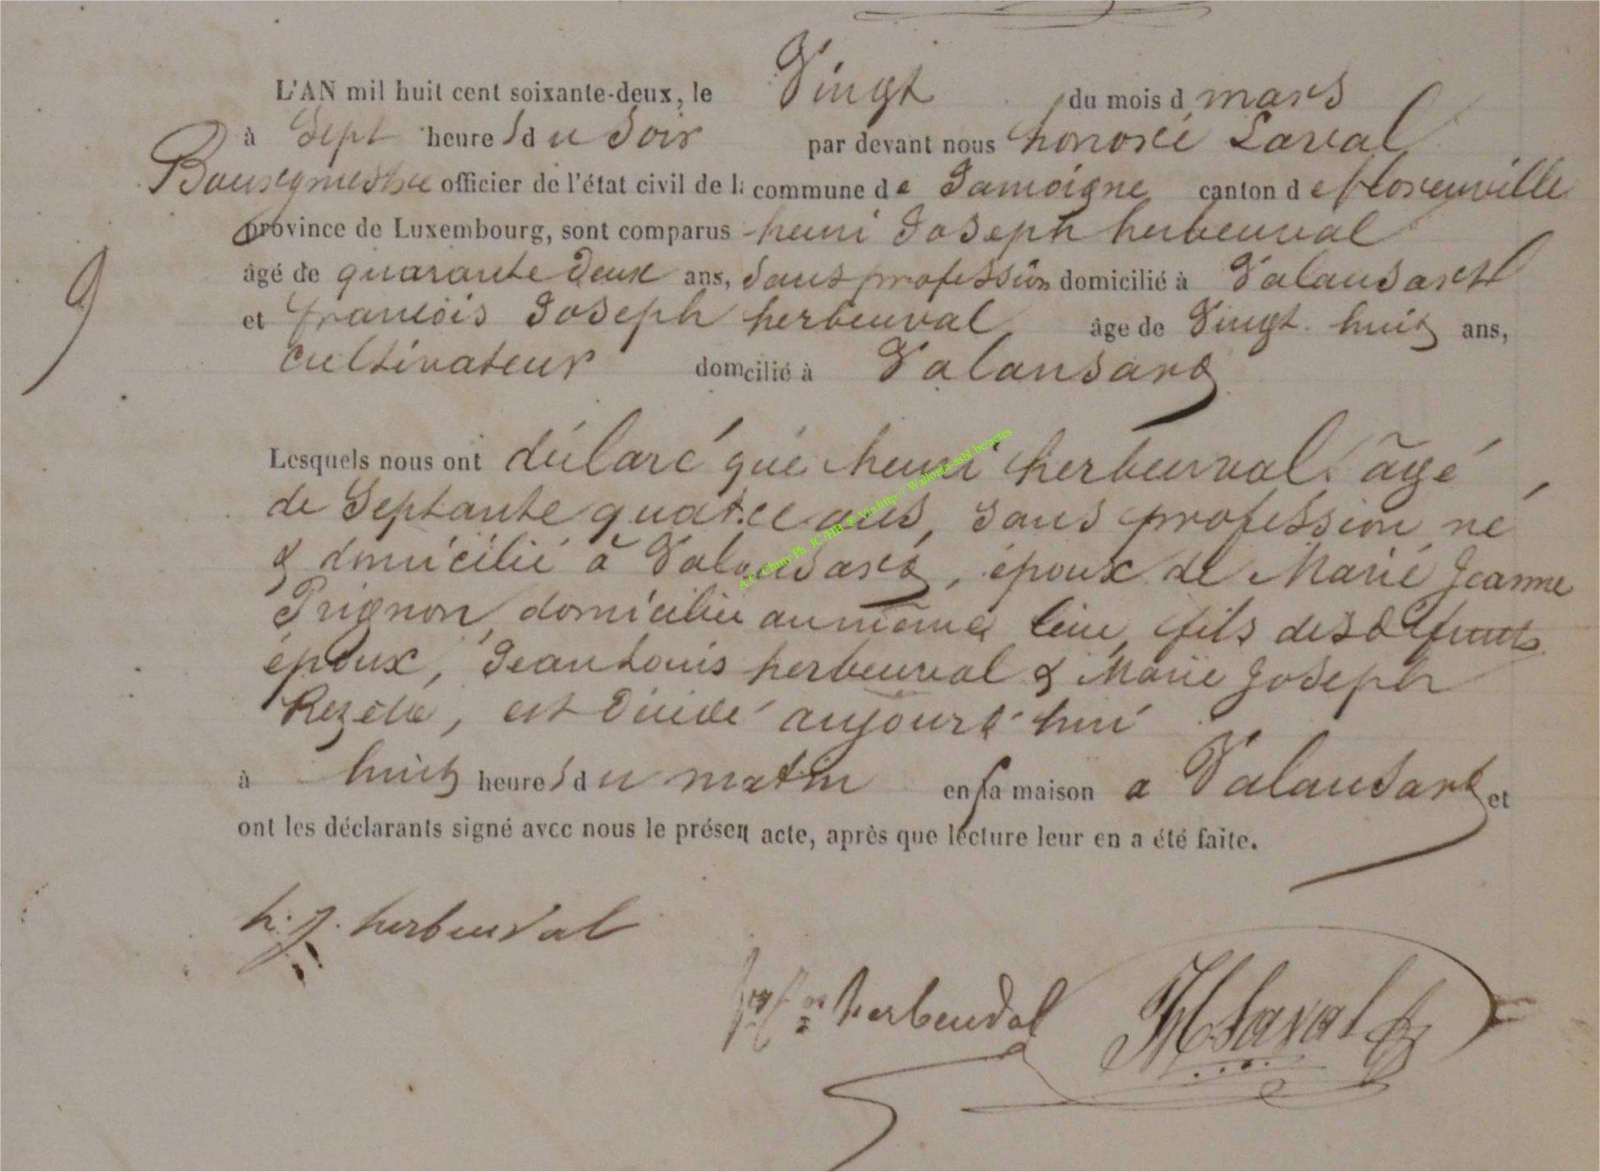 L'AN mil huit cent soixante-deux, le Vingt du mois d mars
à Sept heures du Soir par devant nous honoré Laval
Bourgmestre officier de l'état civil de la commune de Jamoigne canton de florenville
province de Luxembourg, sont comparus henri Joseph herbeuval
âgé de quarante Deux ans, Sans profession domicilié à Valansart
et françois Joseph herbeuval âge de Vingt huit ans,
cultivateur domicilié à Valansard
9
Lesquels nous ont déclaré que henri herbeuval âgé
de Septante quatre ans, Sans profession né
& domicilié à Valansard, époux de Marie Jeanne
Prignon domiciliée au même lieu, fils des défunts
époux, Jean Louis herbeuval & Marie Joseph
est Décédé aujourd'hui
à huit heures du matin en sa maison a Valansart et
ont les déclarants signé avec nous le présent acte, après que lecture leur en a été faite.
h. j. herbeuval
herbeuval
H Laval